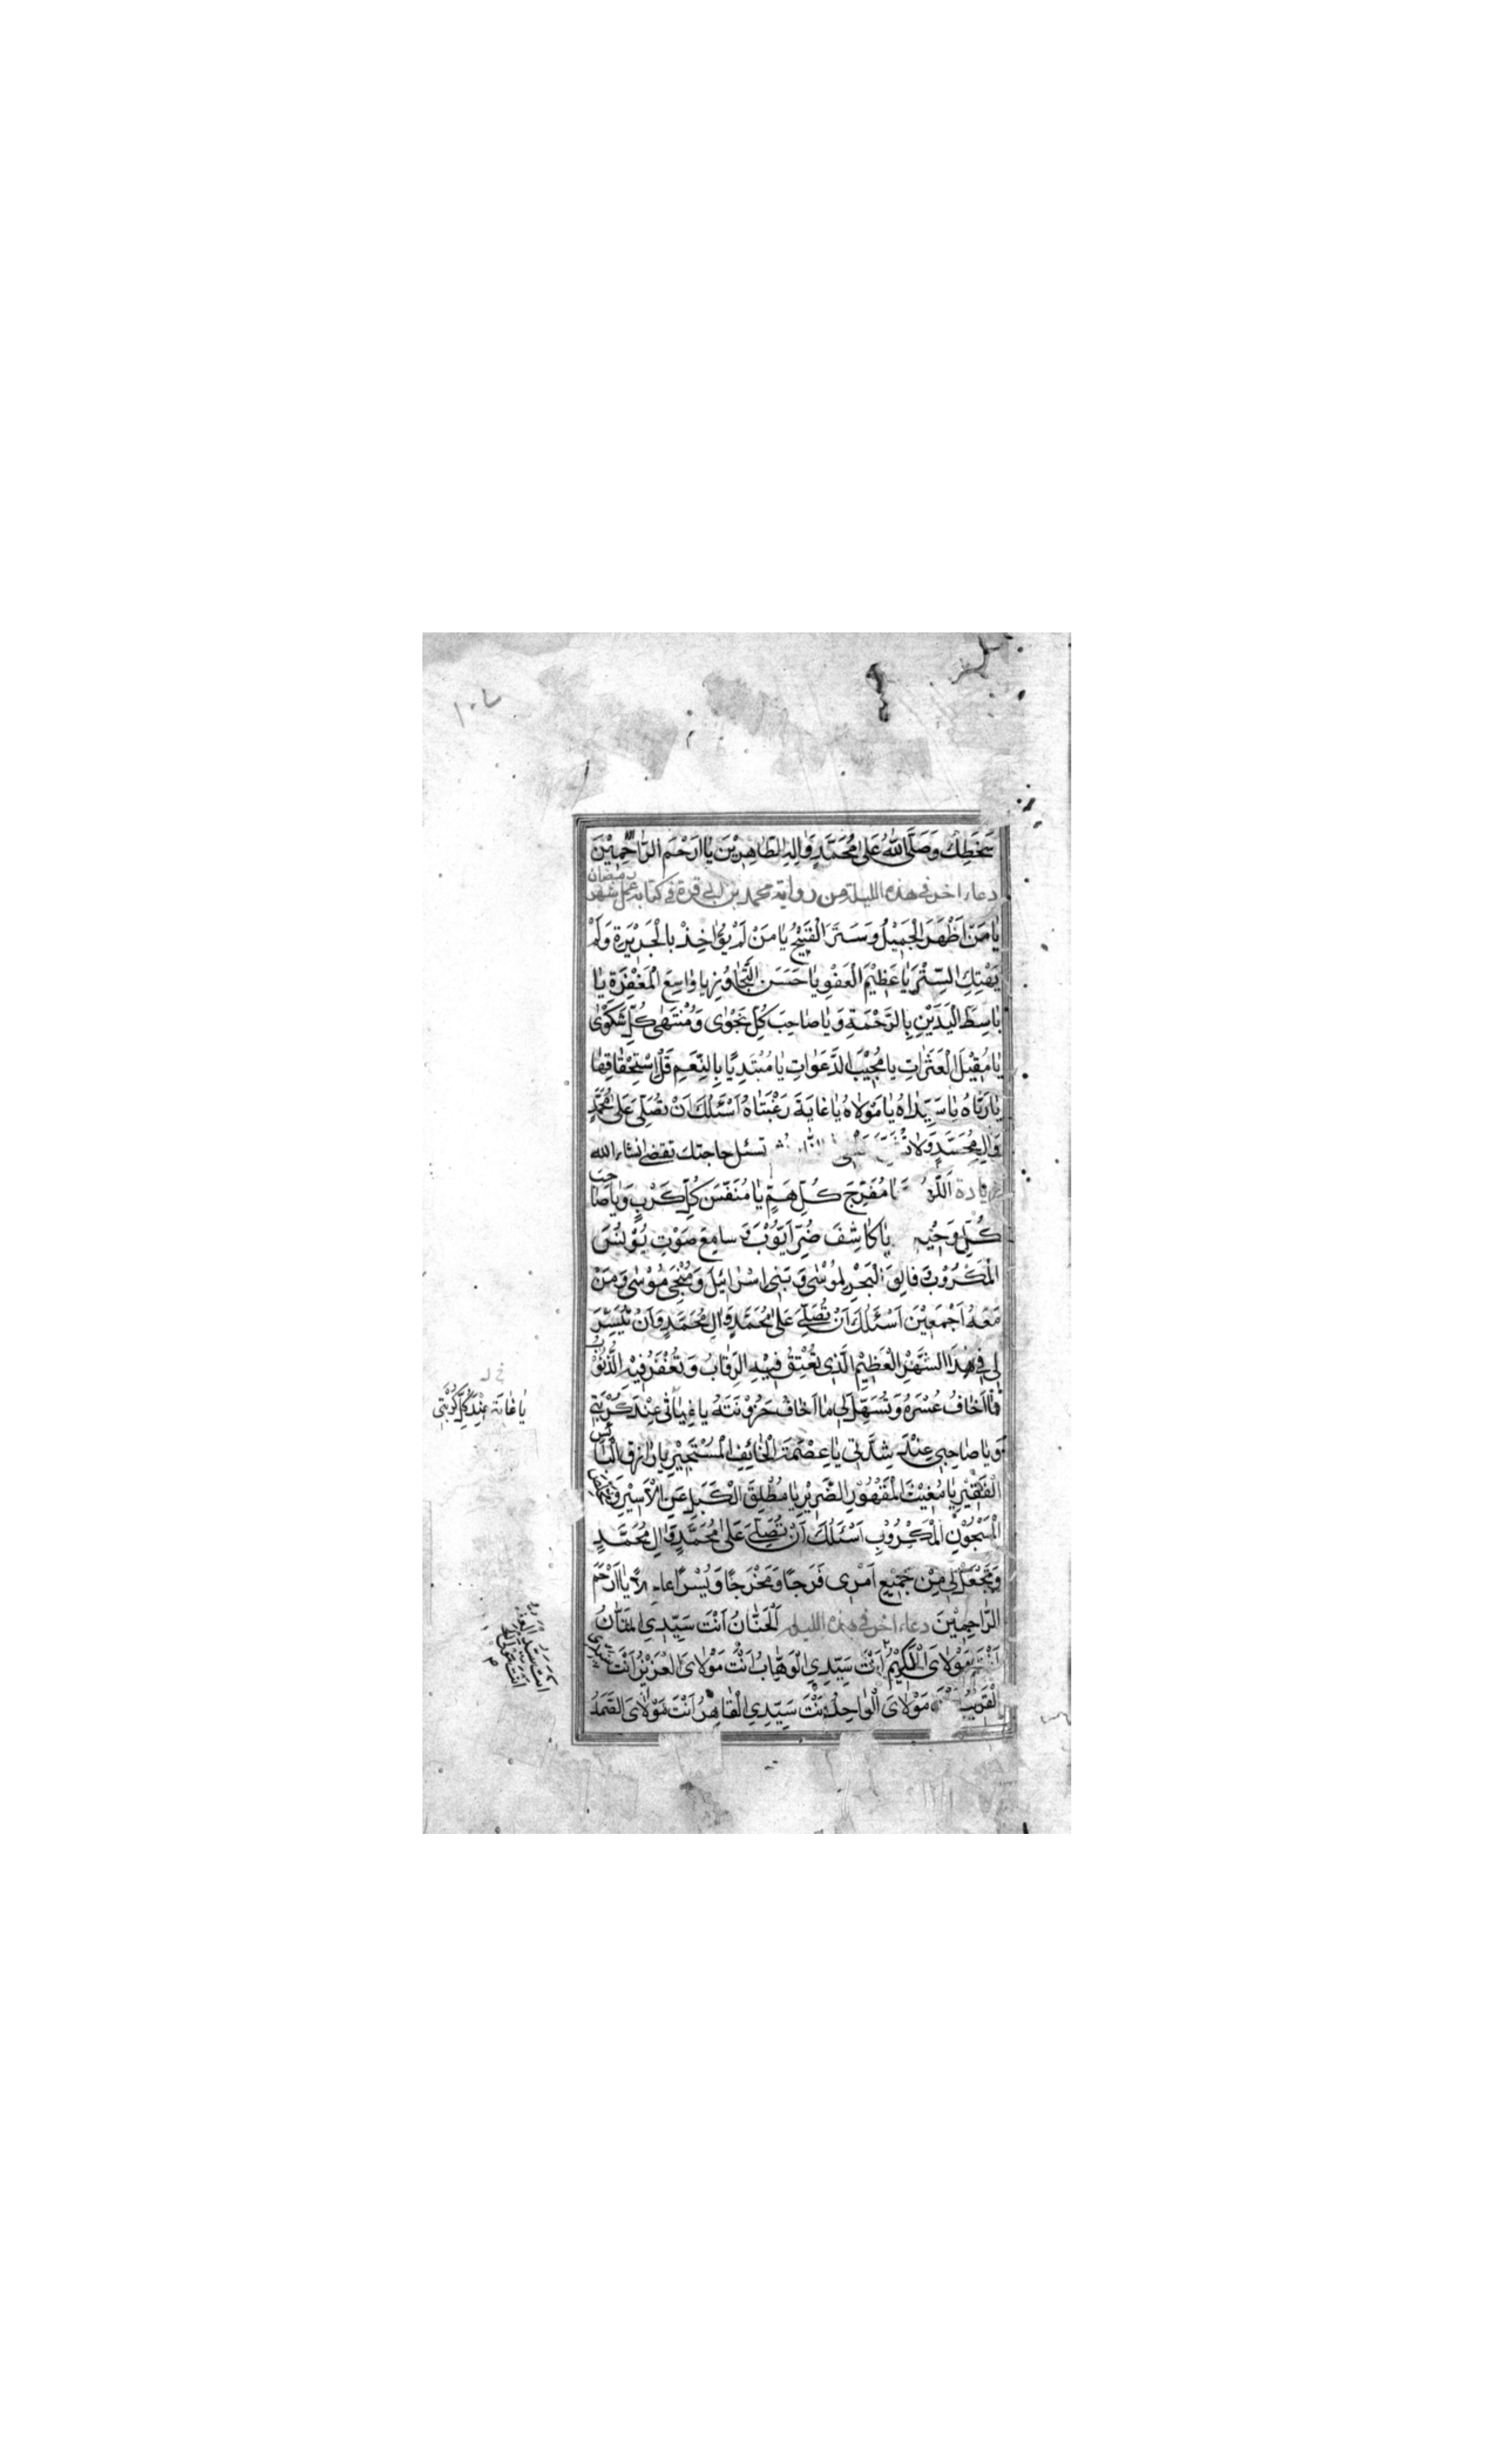 ١٠٧
سَخَطِكَ وَصَلَّى اللهُ عَلَى مُحَمَّدٍ وَاٰلِهِ الطَّاهِرِيْنَ يَا اَرْحَمَ الرَّاحِمِيْنَ
دعاء اخر فى هذه الليلة من رواية محمد بن ابى قرة فى كتابه عمل شهر رمضان
يَا مَنْ اَظْهَرَ الْجَمِيْلَ وَسَتَرَ الْقَبِيْحَ يَا مَنْ لَمْ يُؤَاخِذْ بِالْجَرِيْرَةِ وَلَمْ
يَهْتِكِ السِّتْرَ يَا عَظِيْمَ الْعَفْوِ يَا حَسَنَ التَّجَاوُزِ يَا وَاسِعَ الْمَغْفِرَةِ يَا
بَاسِطَ الْيَدَيْنِ بِالرَّحْمَةِ وَيَا صَاحِبَ كُلِّ نَجْوٰى وَمُنْتَهٰى كُلِّ شَكْوٰى
يَا مُقِيْلَ الْعَثَرَاتِ يَا مُجِيْبَ الدَّعَوَاتِ يَا مُبْتَدِيًا بِالنِّعَمِ قَبْلَ اسْتِحْقَاقِهَا
يَا رَبَّاهُ يَا سَيِّدَاهُ يَا مَوْلَاهُ يَا غَايَةَ رَغْبَتَاهُ اَسْئَلُكَ اَنْ تُصَلِّىَ عَلٰى مُحَمَّدٍ
وَاٰلِ مُحَمَّدٍ وَلَا تسئل حاجتك تقضى انشاء الله
زيادة اَللّٰهُمَّ يَا مُفَرِّجَ كُلِّ هَمٍّ يَا مُنَفِّسَ كُلِّ كَرْبٍ وَيَا صَاحِبَ
كُلِّ وَحِيْدٍ يَا كَاشِفَ ضُرِّ اَيُّوْبَ وَ سَامِعَ صَوْتِ يُوْنُسَ
الْمَكْرُوْبِ وَ فَالِقَ الْبَحْرِ لِمُوْسٰى وَ بَنِى اِسْرَائِيْلَ وَ مُنْجِىَ مُوْسٰى وَ مَنْ
مَعَهُ اَجْمَعِيْنَ اَسْئَلُكَ اَنْ تُصَلِّىَ عَلٰى مُحَمَّدٍ وَاٰلِ مُحَمَّدٍ وَاَنْ تُيَسِّرَ
لِى فِى هٰذَا الشَّهْرِ الْعَظِيْمِ الَّذِى تُعْتِقُ فِيْهِ الرِّقَابَ وَ تَغْفِرُ فِيْهِ الذُّنُوْبَ
مَا اَخَافُ عُسْرَهُ وَ تُسَهِّلَ لِى مَا اَخَافُ حُزُوْنَتَهُ يَا غِيَاثِى عِنْدَ كُرْبَتِى
وَيَا صَاحِبِى عِنْدَ شِدَّتِى يَا عِصْمَةَ الْخَائِفِ الْمُسْتَجِيْرِ يَا رَازِقَ الْبَائِسِ
الْفَقِيْرِ يَا مُغِيْثَ الْمَقْهُوْرِ الضَّرِيْرِ يَا مُطْلِقَ الْكَبَلِ عَنِ الْاَسِيْرِ وَمُخَلِّصَ
الْمَسْجُوْنِ الْمَكْرُوْبِ اَسْئَلُكَ اَنْ تُصَلِّىَ عَلٰى مُحَمَّدٍ وَاٰلِ مُحَمَّدٍ
وَ تَجْعَلَ لِى مِنْ جَمِيْعِ اَمْرِى فَرَجًا وَ مَخْرَجًا وَ يُسْرًا عَاجِلًا يَا اَرْحَمَ
الرَّاحِمِيْنَ دعاء اخر فى هذه الليلة اَلْحَنَّانُ اَنْتَ سَيِّدِى الْمَنَّانُ
اَنْتَ مَوْلَاىَ الْكَرِيْمُ اَنْتَ سَيِّدِى الْوَهَّابُ اَنْتَ مَوْلَاىَ الْعَزِيْزُ اَنْتَ سَيِّدِى
الْقَرِيْبُ اَنْتَ مَوْلَاىَ الْوَاحِدُ اَنْتَ سَيِّدِى الْقَاهِرُ اَنْتَ مَوْلَاىَ الصَّمَدُ
خ ل